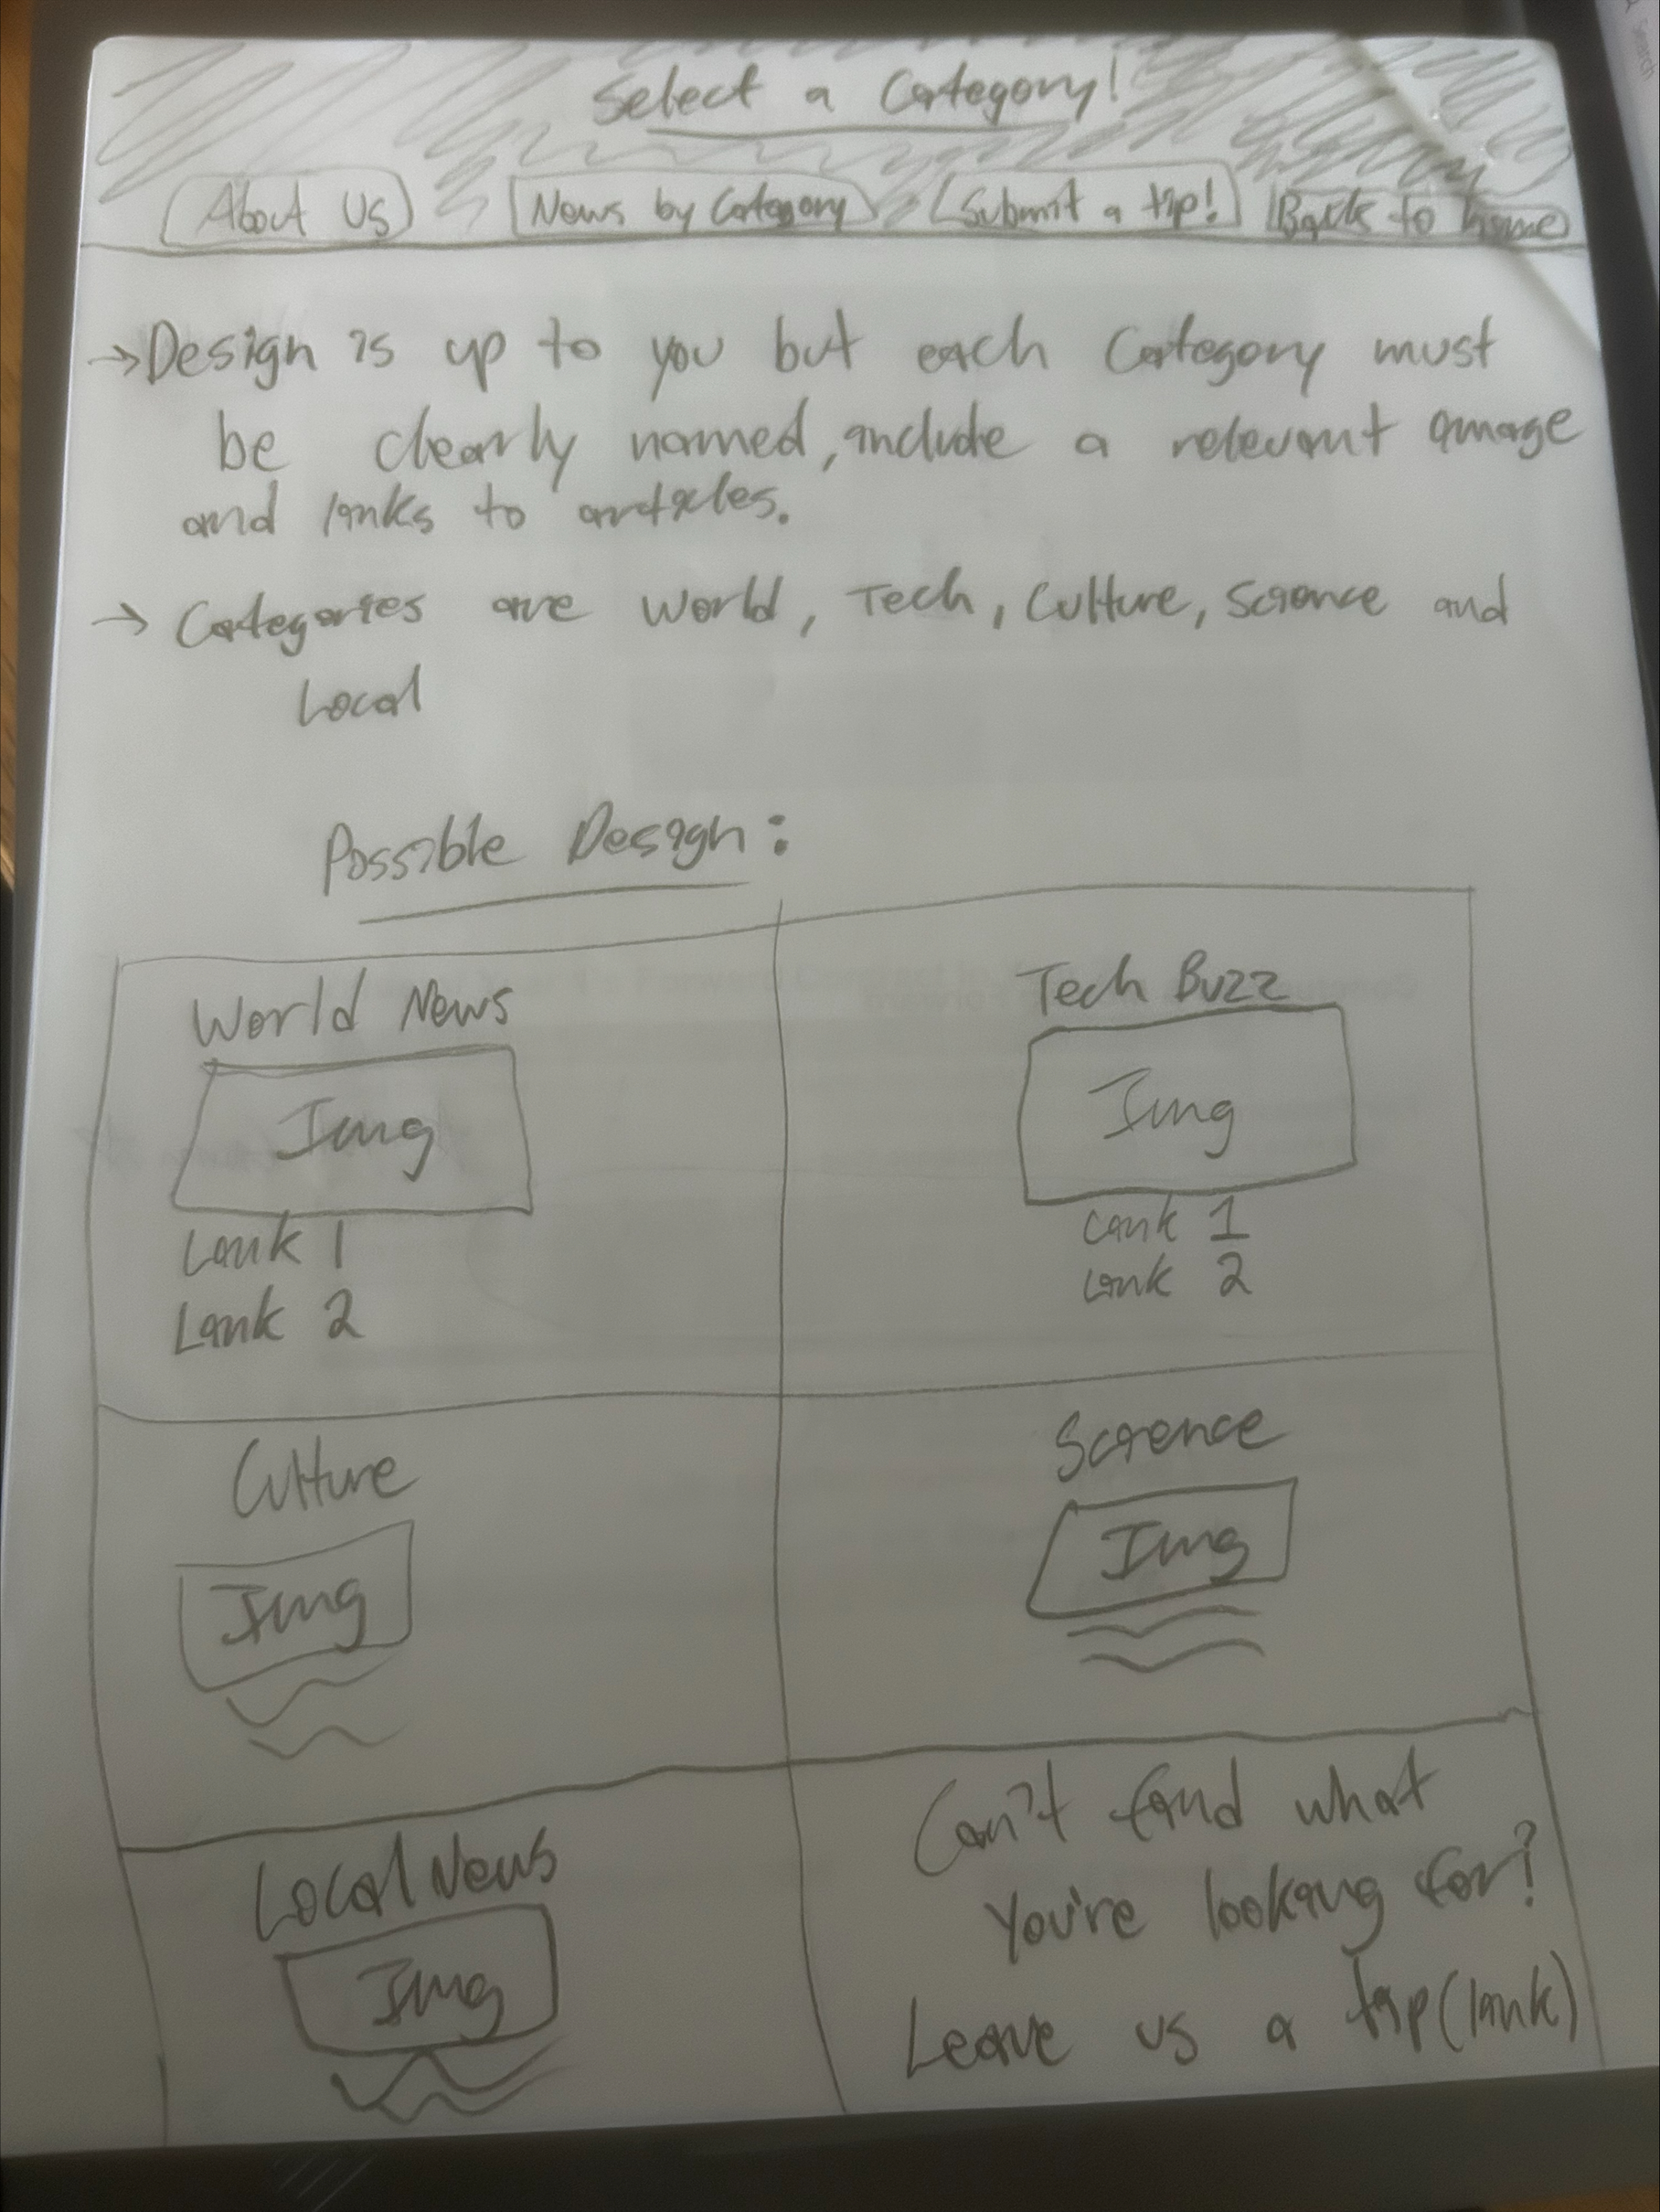 Search
Select a Category!
About Us
News by Category
Submit a tip!
Back to home
→ Design is up to you but each Category must
be clearly named, include a relevant image
and links to articles.
→ Categories are World, Tech, Culture, Science and
Local
Possible Design:
World News
Img
Link 1
Link 2
Tech Buzz
Img
Link 1
Link 2
Culture
Img
Science
Img
Local News
Img
Can't find what
you're looking for?
Leave us a tip (link)